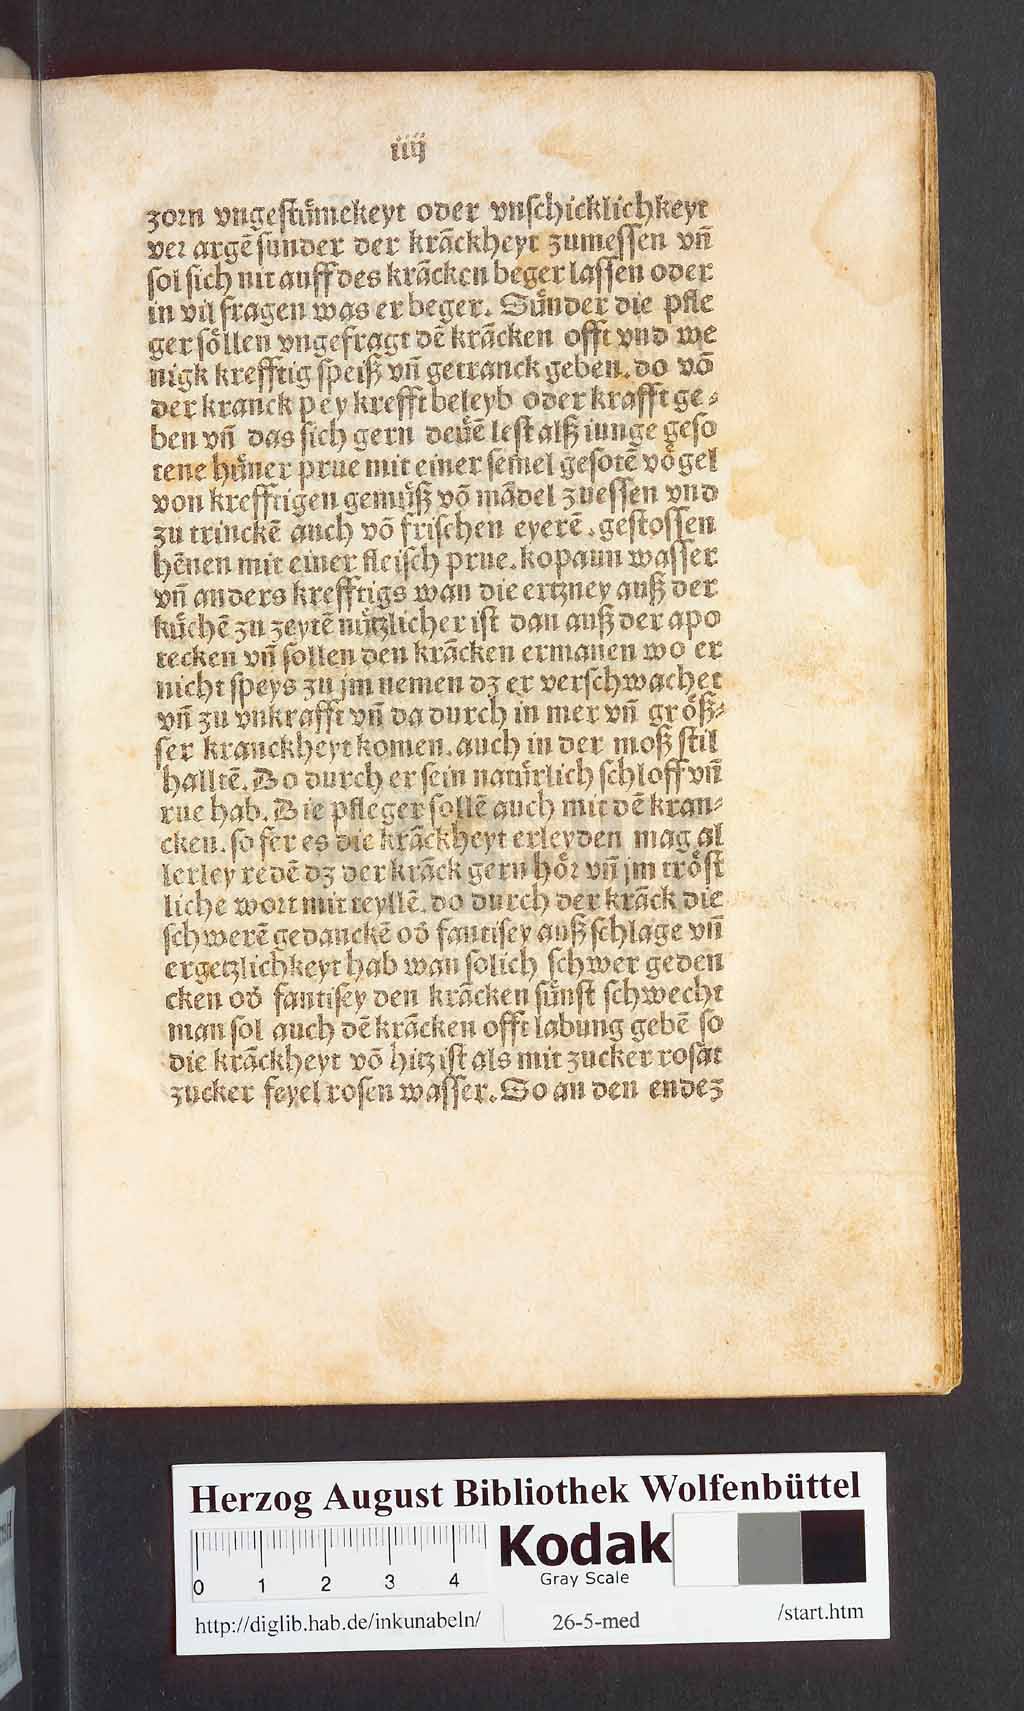 iiij
zorn vngestümekeyt oder vnschicklichkeyt
ver argē sunder der krāckheyt zumessen vñ
sol sich nit auff des krācken beger lassen oder
in vil fragen was er beger. Sünder die pfle
ger söllen vngefragt dē krācken offt vnd we
nigk krefftig speiß vñ getranck geben. do vō
der kranck pey krefft beleyb oder krafft ge⸗
ben vñ das sich gern deuē lest alß iunge geso
tene hüner prue mit einer semel gesotē vögel
von krefftigen gemüß vō mādel zuessen vnd
zu trinckē auch vō frischen eyerē. gestossen
hēnen mit einer fleisch prue. kopaun wasser
vñ anders krefftigs wan die ertzney auß der
küchē zu zeytē nützlicher ist dan auß der apo
tecken vñ söllen den krācken ermanen wo er
nicht speys zu jm nemen dz er verschwachet
vñ zu vnkrafft vñ da durch in mer vñ größ⸗
ser kranckheyt komen. auch in der moß stil
halltē. Do durch er sein natürlich schloff vñ
rue hab. Die pfleger sollē auch mit dē kran⸗
cken. so fer es die krāckheyt erleyden mag al
lerley redē dz der krāck gern hör vñ jm tröst
liche wort mit teyllē. do durch der krāck die
schwerē gedanckē od̄ fantisey auß schlage vñ
ergetzlichkeyt hab wan solich schwer geden
cken od̄ fantisey den krācken sünst schwecht
man sol auch dē krācken offt labung gebē so
die krāckheyt vō hitz ist als mit zucker rosat
zucker feyel rosen wasser. So an den endez
Herzog August Bibliothek Wolfenbüttel
0 1 2 3 4
Kodak
Gray Scale
http://diglib.hab.de/inkunabeln/ 26-5-med /start.htm